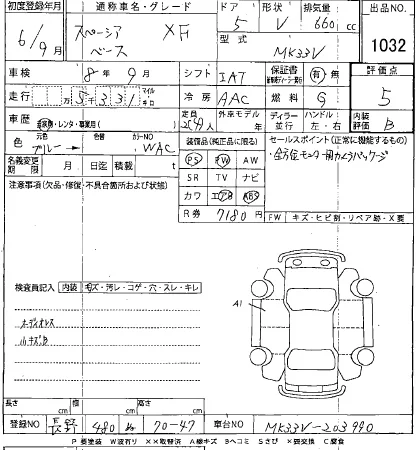 初度登録年月 通称車名・グレード ドア 形状 排気量 出品NO.
6/9月 スペーシア ベース XF 5 V 660 cc 1032
型式 MK33V
車検 8年 9月 シフト IAT 保証書 有 無 評価点
走行 万 5 3 3 1 マイル キロ 冷房 AAC 燃料 G 5
車歴 自家用・レンタ・事業用( ) 定員 外車モデル 年 ディーラー 並行 ハンドル 左・右 内装評価 B
元色 ブルー→ 色替 カラーNO WAC 装備品(純正品に限る) セールスポイント(正常に機能するもの)
名義変更期限 月 日迄 積載 t PS PW AW ・全方位モニター用カメラパッケージ
注意事項(欠品・修復・不具合箇所および状態) SR TV ナビ
カワ エアB ABS
R券 7180円 FW キズ・ヒビ割・リペア跡・X要
検査員記入 内装 キズ・汚レ・コゲ・穴・スレ・キレ
A1
小キズB
長さ cm 幅 cm 高さ cm
登録NO 480 70-47 車台NO MK33V-203990
P要塗装 W波有リ XX取替済 A線キズ Bヘコミ Sさび X要交換 C腐食